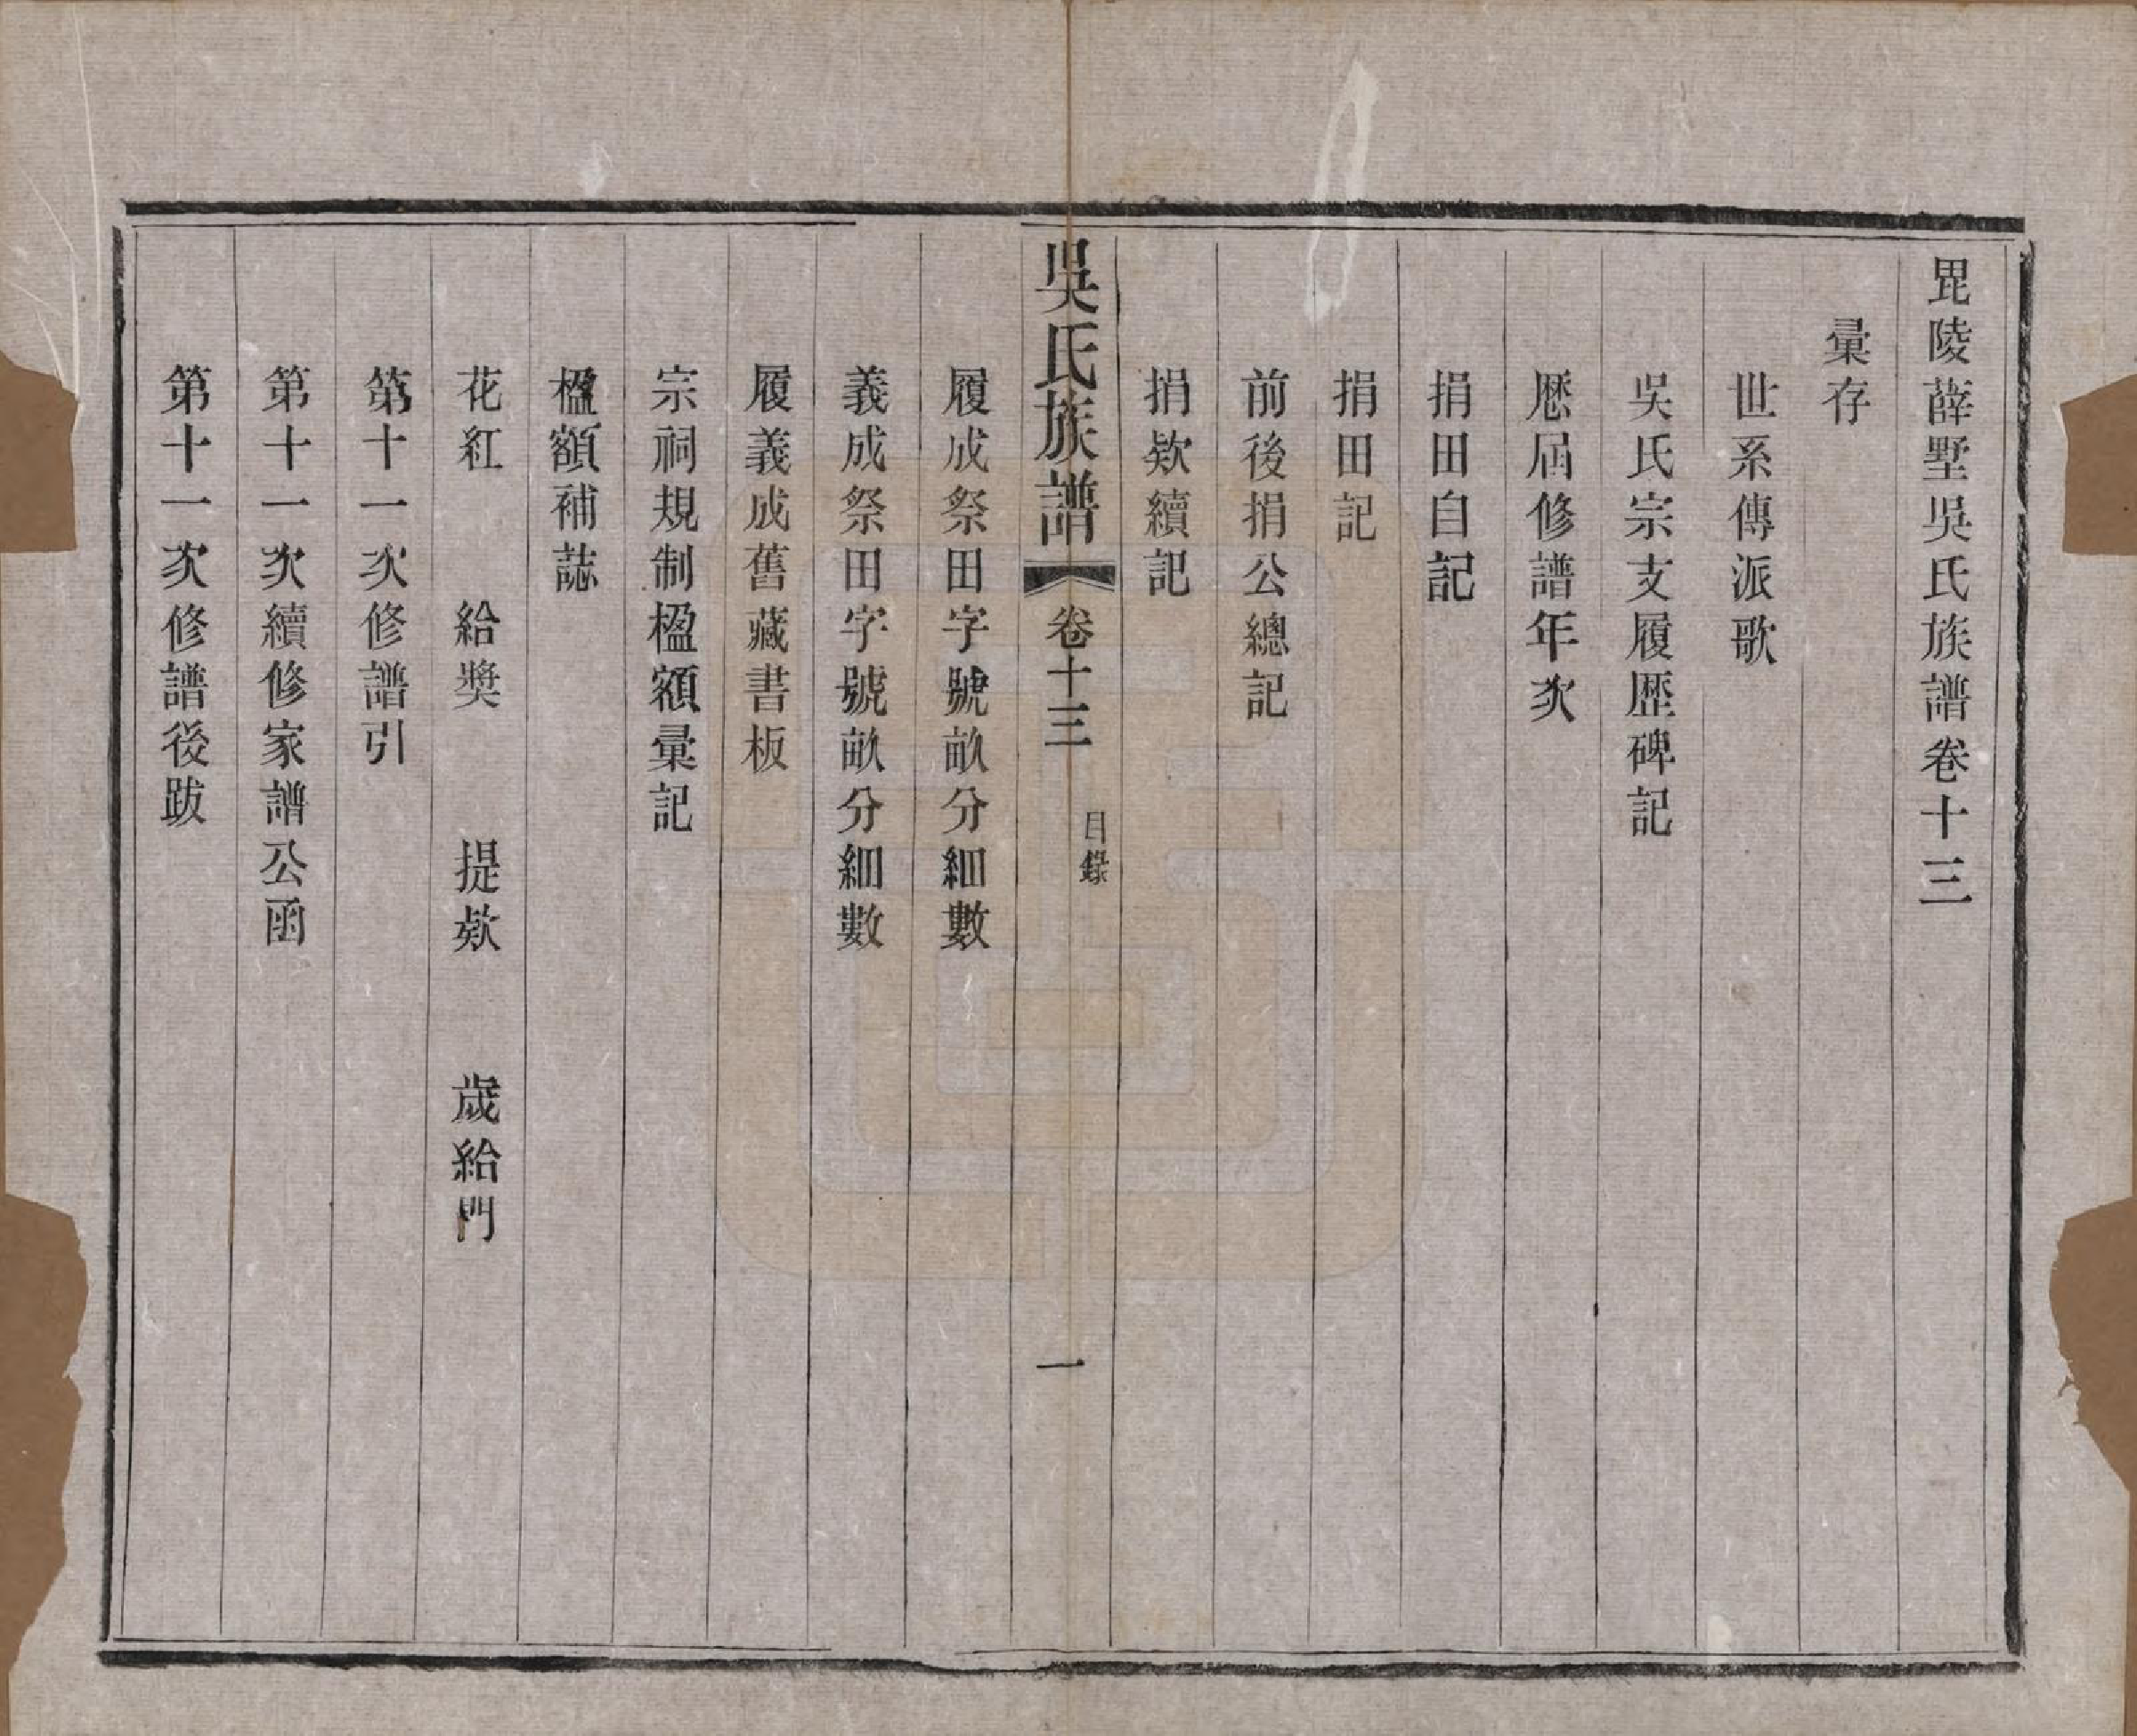 毘陵薛墅吳氏族譜卷十三
彚存
世系傳派歌
吳氏宗支履歷碑記
歷屆修譜年次
捐田自記
捐田記
前後捐公總記
捐欵續記
吳氏族譜 卷十三 目錄 一
履成祭田字號畝分細數
義成祭田字號畝分細數
履義成舊藏書板
宗祠規制楹額彚記
楹額補誌
花紅 給奬 提欵 歲給門
第十一次修譜引
第十一次續修家譜公函
第十一次修譜後跋